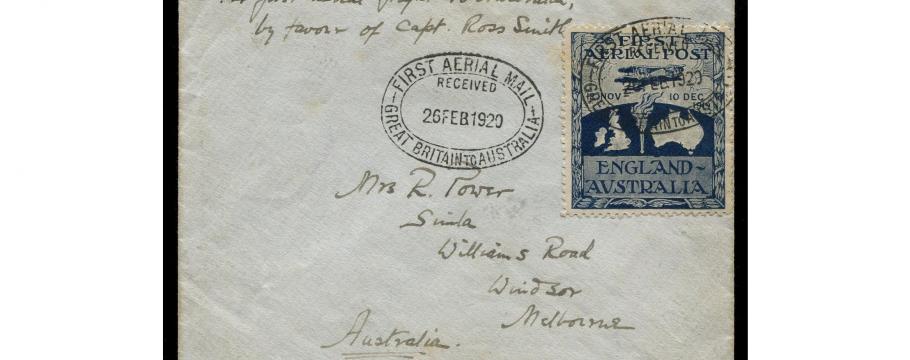 first aerial flight
by favour of Capt. Ross Smith
FIRST AERIAL MAIL
RECEIVED
26 FEB 1920
GREAT BRITAIN TO AUSTRALIA
FIRST
AERIAL POST
26 FEB 1920
NOV 10 DEC
1919
ENGLAND ~
AUSTRALIA
Mrs R. Power
Simla
Williams Road
Windsor
Melbourne
Australia.